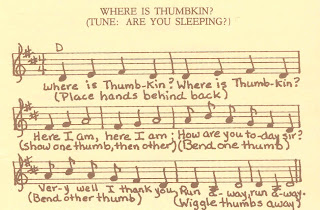 WHERE IS THUMBKIN?
(TUNE: ARE YOU SLEEPING?)
D
Where is Thumb-Kin? Where is Thumb-Kin?
(Place hands behind back)
Here I am, here I am; How are you to-day sir?
(Show one thumb, then other) (Bend one thumb)
Ver-y well I thank you, Run a-way, run a-way.
(Bend other thumb) (Wiggle thumbs away)